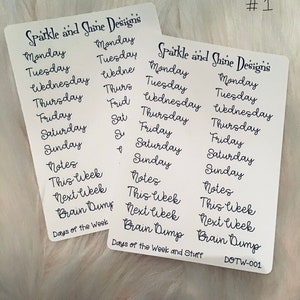 #1
Sparkle and Shine Designs
Monday
Tuesday
Wednesday
Thursday
Friday
Saturday
Sunday
Notes
This Week
Next Week
Brain Dump
Days of the Week
Monday
Tuesday
Wedne
Thurs
Frida
Satu
Sund
Sparkle and Shine Designs
Monday Monday
Tuesday Tuesday
Wednesday Wednesday
Thursday Thursday
Friday Friday
Saturday Saturday
Sunday Sunday
Notes Notes
This Week This Week
Next Week Next Week
Brain Dump Brain Dump
Days of the Week and Stuff DOTW-001